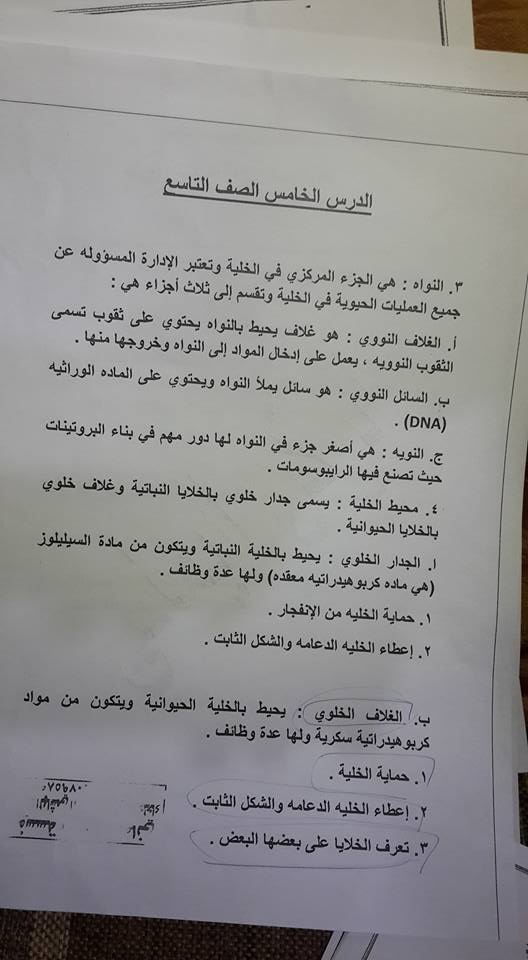 الدرس الخامس الصف التاسع
٣. النواه : هي الجزء المركزي في الخلية وتعتبر الإدارة المسؤوله عن
جميع العمليات الحيوية في الخلية وتقسم إلى ثلاث أجزاء هي :
أ. الغلاف النووي : هو غلاف يحيط بالنواه يحتوي على ثقوب تسمى
الثقوب النوويه ، يعمل على إدخال المواد إلى النواه وخروجها منها .
ب. السائل النووي : هو سائل يملأ النواه ويحتوي على الماده الوراثيه
(DNA) .
ج. النويه : هي أصغر جزء في النواه لها دور مهم في بناء البروتينات
حيث تصنع فيها الرايبوسومات .
٤. محيط الخلية : يسمى جدار خلوي بالخلايا النباتية وغلاف خلوي
بالخلايا الحيوانية .
ا. الجدار الخلوي : يحيط بالخلية النباتية ويتكون من مادة السيليلوز
(هي ماده كربوهيدراتيه معقده) ولها عدة وظائف .
١. حماية الخليه من الإنفجار .
٢. إعطاء الخليه الدعامه والشكل الثابت .
ب. الغلاف الخلوي : يحيط بالخلية الحيوانية ويتكون من مواد
كربوهيدراتية سكرية ولها عدة وظائف .
١. حماية الخلية .
٢. إعطاء الخليه الدعامه والشكل الثابت .
٣. تعرف الخلايا على بعضها البعض .